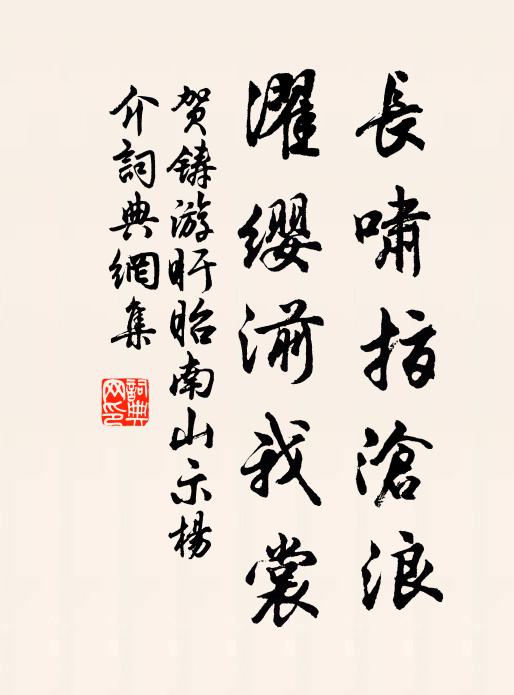 長嘯指滄浪
濯纓湔我裳
賀鑄游盱眙南山示楊
介詞典網集
詞典網印